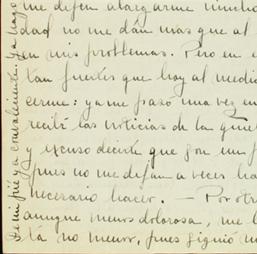 me dejen alargarme mucho
dad no me dán mas que al
en mis problemas. Pero en e
tan fuertes que hoy al medio
cerme: ya me pasó una vez en
recibí las noticias de la
y excuso decirte que son un
pues no me dejan a veces ha
necesario hacer. — Por otr
aunque menos dolorosa, me
tá no menor, pues siguió
De mi pié ya convaleciente, ya hago